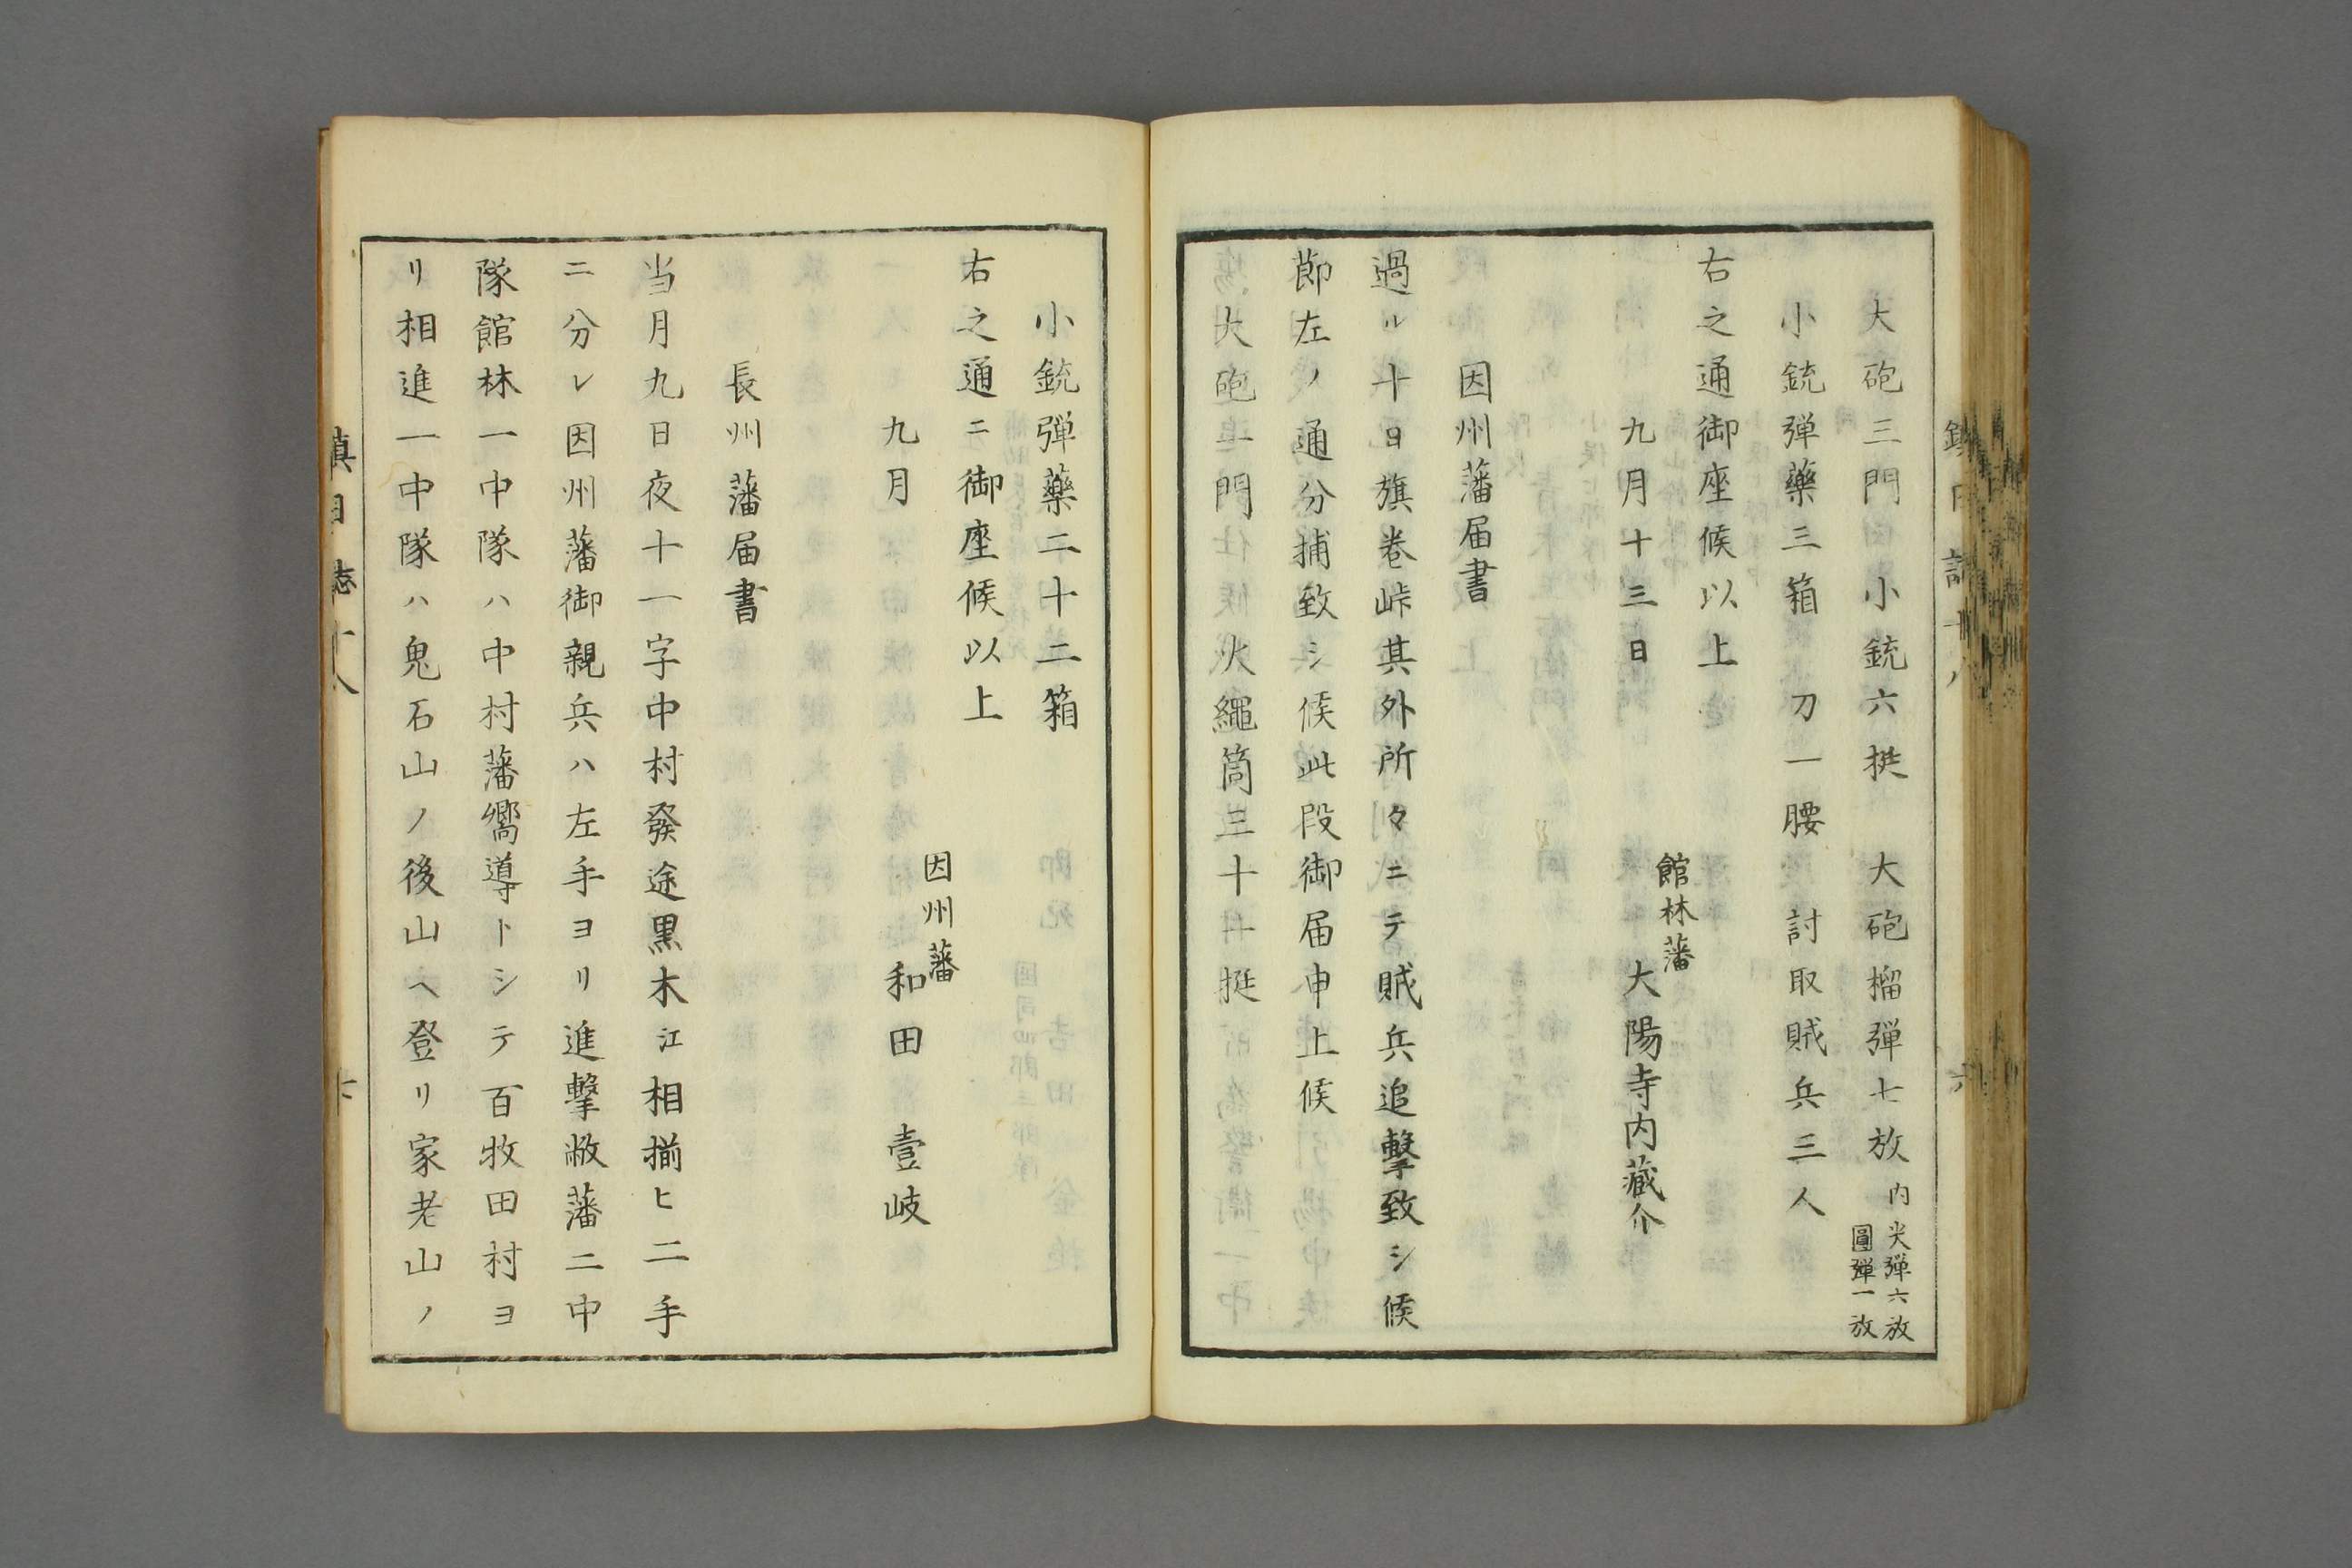 大砲三門　小銃六挺　大砲榴弾七放　内　尖弾六放
圓弾一放
小銃弾藥三箱　刀一腰　討取賊兵三人
右之通御座候以上
館林藩
九月十三日　大陽寺内藏介
因州藩届書
過ル十日旗巻峠其外所々ニテ賊兵追擊致シ候
節左ノ通分捕致シ候此段御届申上候
大砲一門　火繩筒三十廾挺
小銃弾藥二十二箱
右之通ニ御座候以上
因州藩
九月　和田　壹岐
長州藩届書
当月九日夜十一字中村發途黒木江相揃ヒ二手
ニ分レ因州藩御親兵ハ左手ヨリ進擊敝藩二中
隊館林一中隊ハ中村藩嚮導トシテ百牧田村ヨ
リ相進一中隊ハ鬼石山ノ後山ヘ登リ家老山ノ